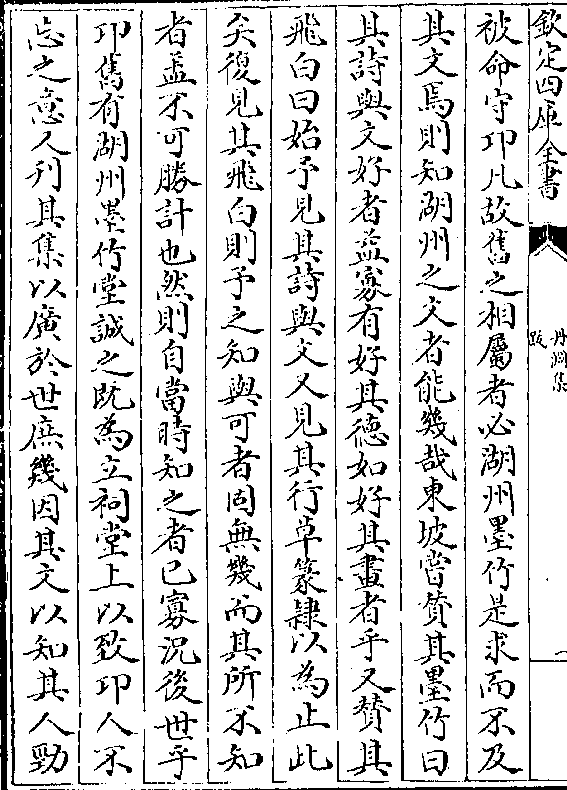 欽定四庫全書
丹淵集
跋
一
被命守邛凡故舊之相屬者必湖州墨竹是求而不及
其文焉則知湖州之文者能幾哉東坡嘗贊其墨竹曰
其詩與文好者益寡有好其德如好其畫者乎又贊其
飛白曰始予見其詩與文又見其行草篆隷以為止此
矣復見其飛白則予之知與可者固無幾而其所不知
者盖不可勝計也然則自當時知之者已寡況後世乎
邛舊有湖州墨竹堂誠之既為立祠堂上以致邛人不
忘之意又刋其集以廣於世庶幾因其文以知其人勁